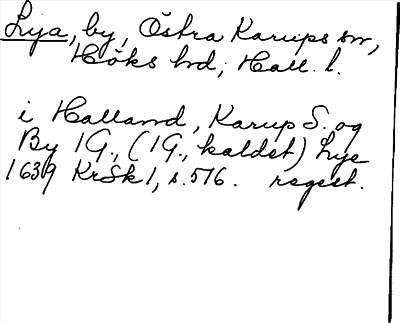 Lya, by, Östra Karups sn,
Höks hd, Hall. l.
i Halland, Karup S. og
By 1 G., (1 G., kaldet) Lye
1639 KrSk 1, s. 576. regest.